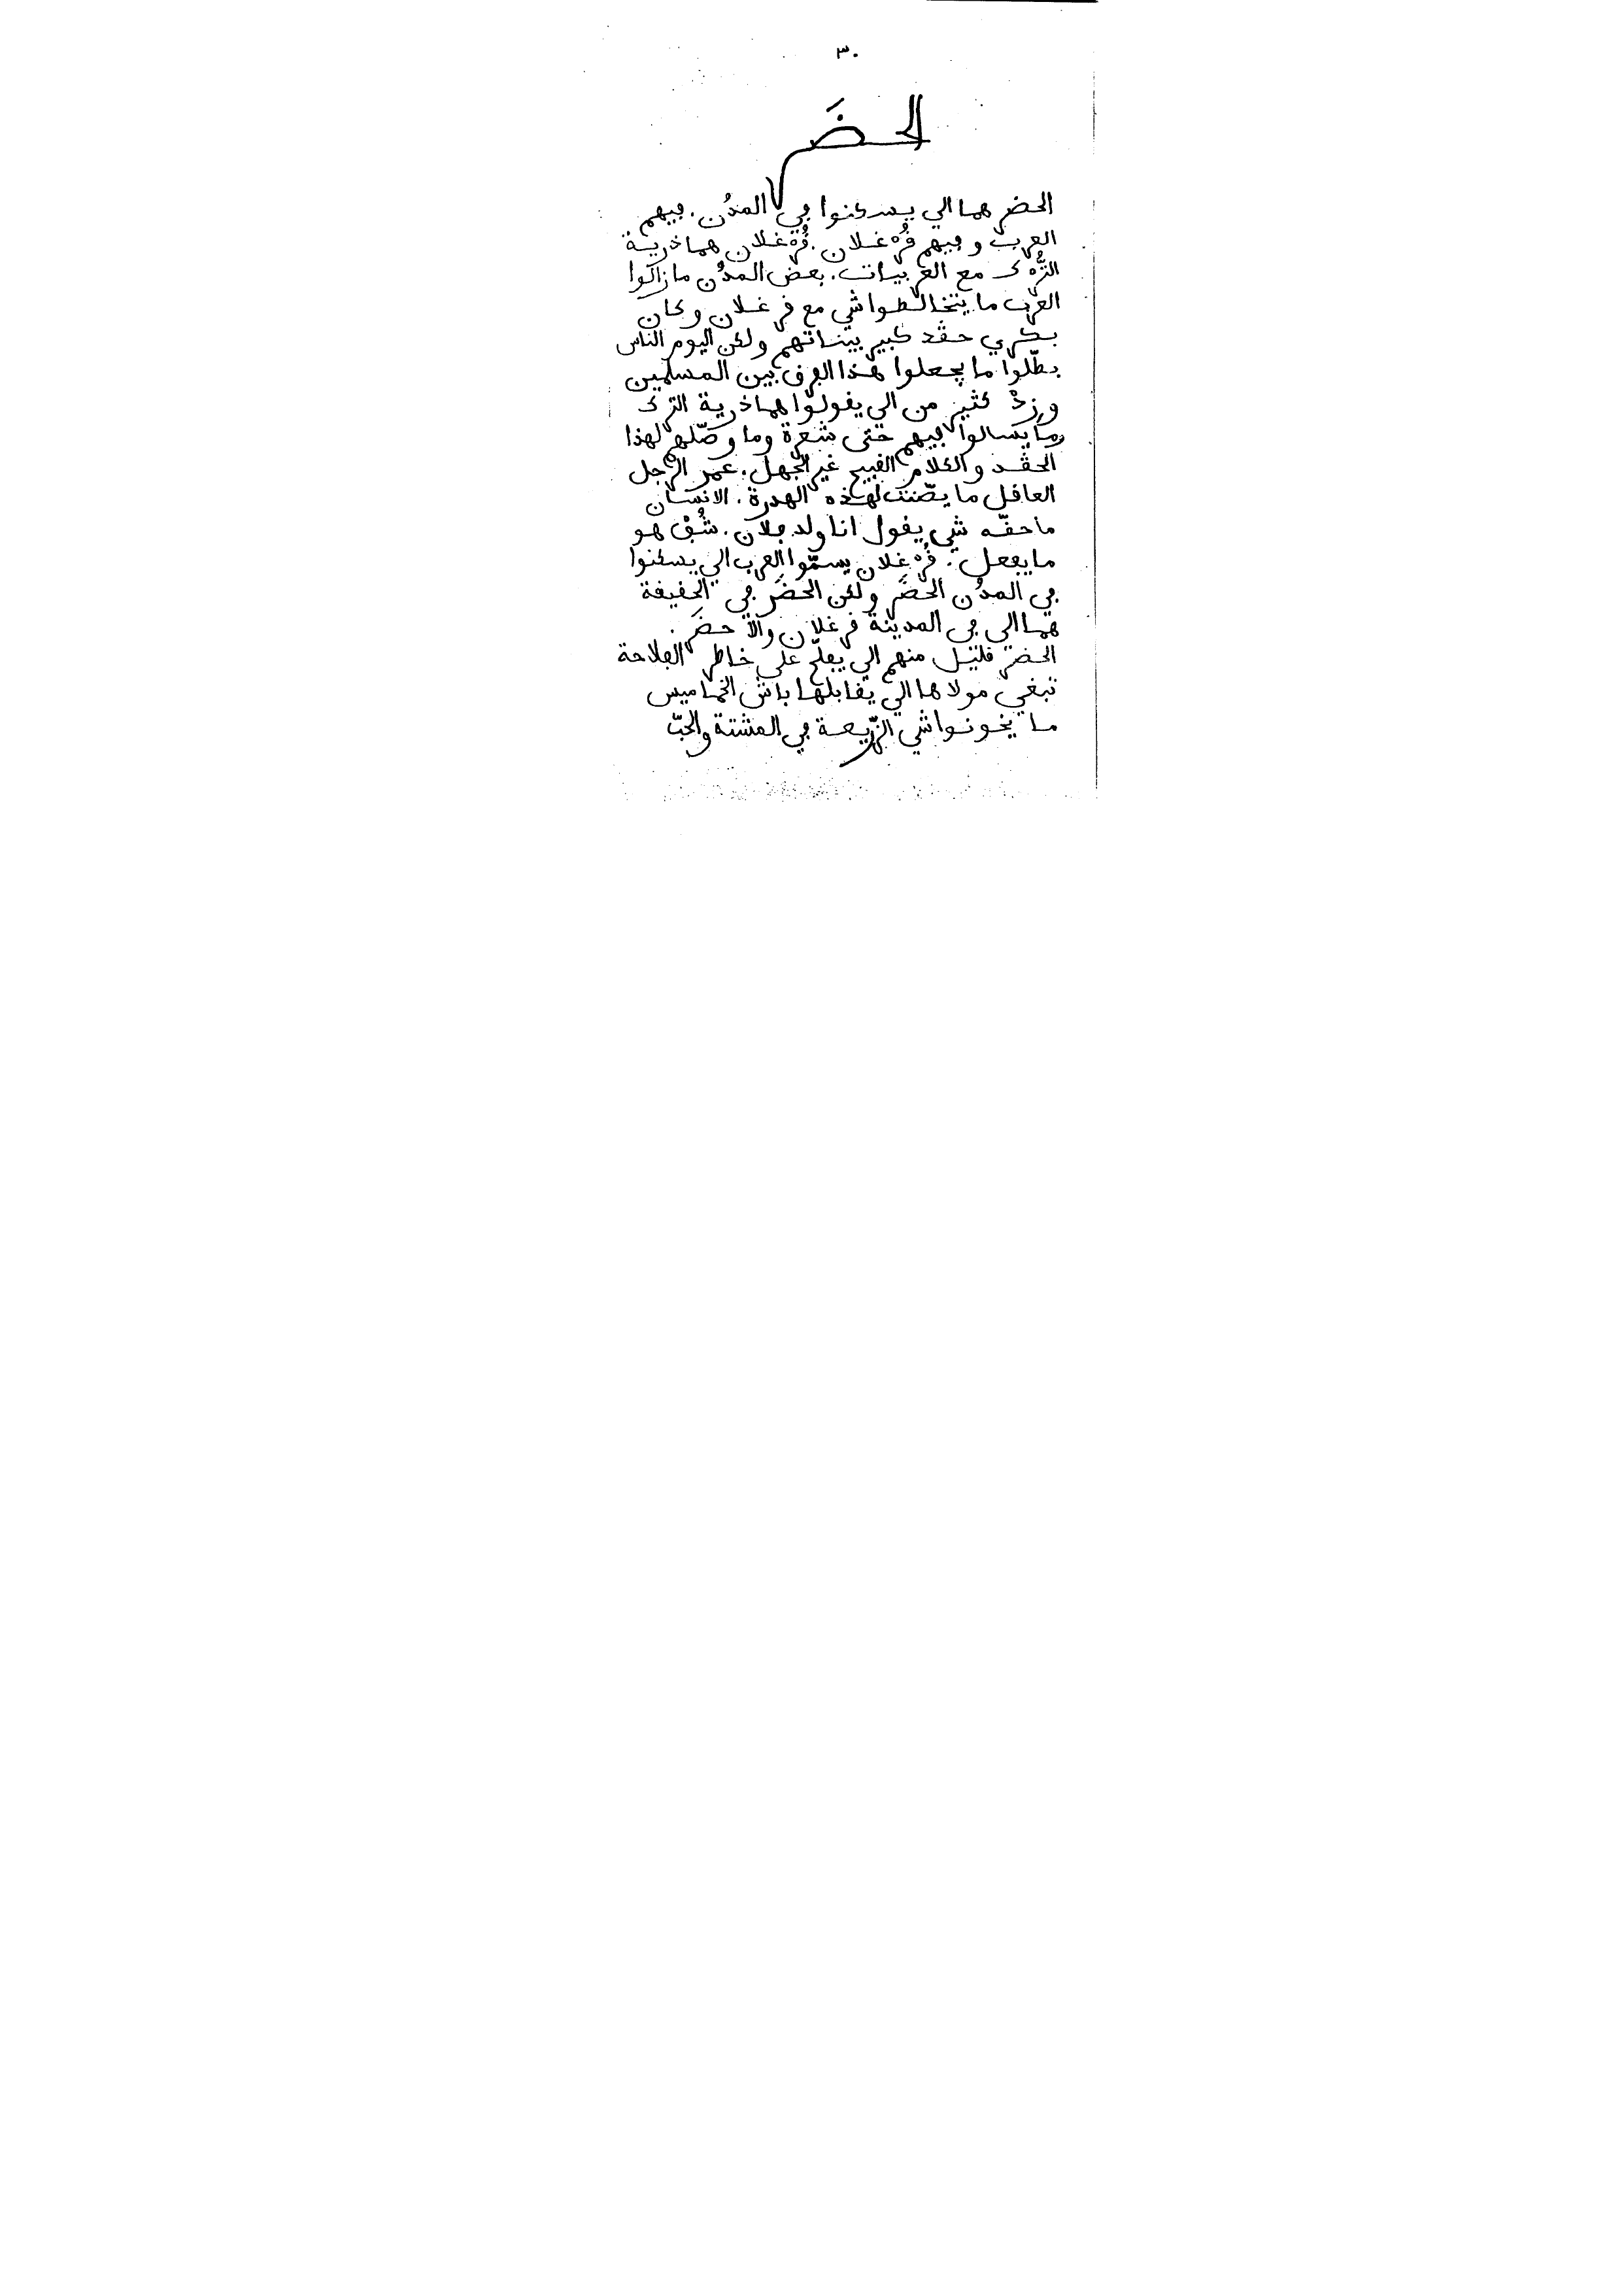 ٣٠
الحضَر
الحضر هما الي يسكنوا في المدُن. فيهم
العرب وفيهم قُرْغلان. قُرْغلان هما ذرية
التُّرْك مع العربيات. بعض المدُن مازالوا
العرب ما يتخالطواشي مع قرغلان وكان
بكري حقد كبير بيناتهم ولكن اليوم الناس
بطّلوا ما يجعلوا هذا الفرق بين المسلمين
وزِدْ كثير من الي يقولوا هما ذرية الترك
وما يسالوا فيهم حتى شعرة وما وصّلهم لهذا
الحقد والكلام القبيح غير الجهل. عمر الرّجل
العاقل ما يصّنت لهذه الهدرة. الانسان
ما حقّه شي يقول انا ولد فلان. شُفْ هو
ما يفعل. قُرْغلان يسمّوا العرب الي يسكنوا
في المدُن الحضَر ولكن الحضَر في الحقيقة
هما الي في المدينة قرغلان والّا حضَر.
الحضر قليل منهم الي يفلّح على خاطر الفلاحة
تبغي مولاها الي يقابلها باش الخماميس
ما يخونواشي الزّريعة في المشتة والحبّ